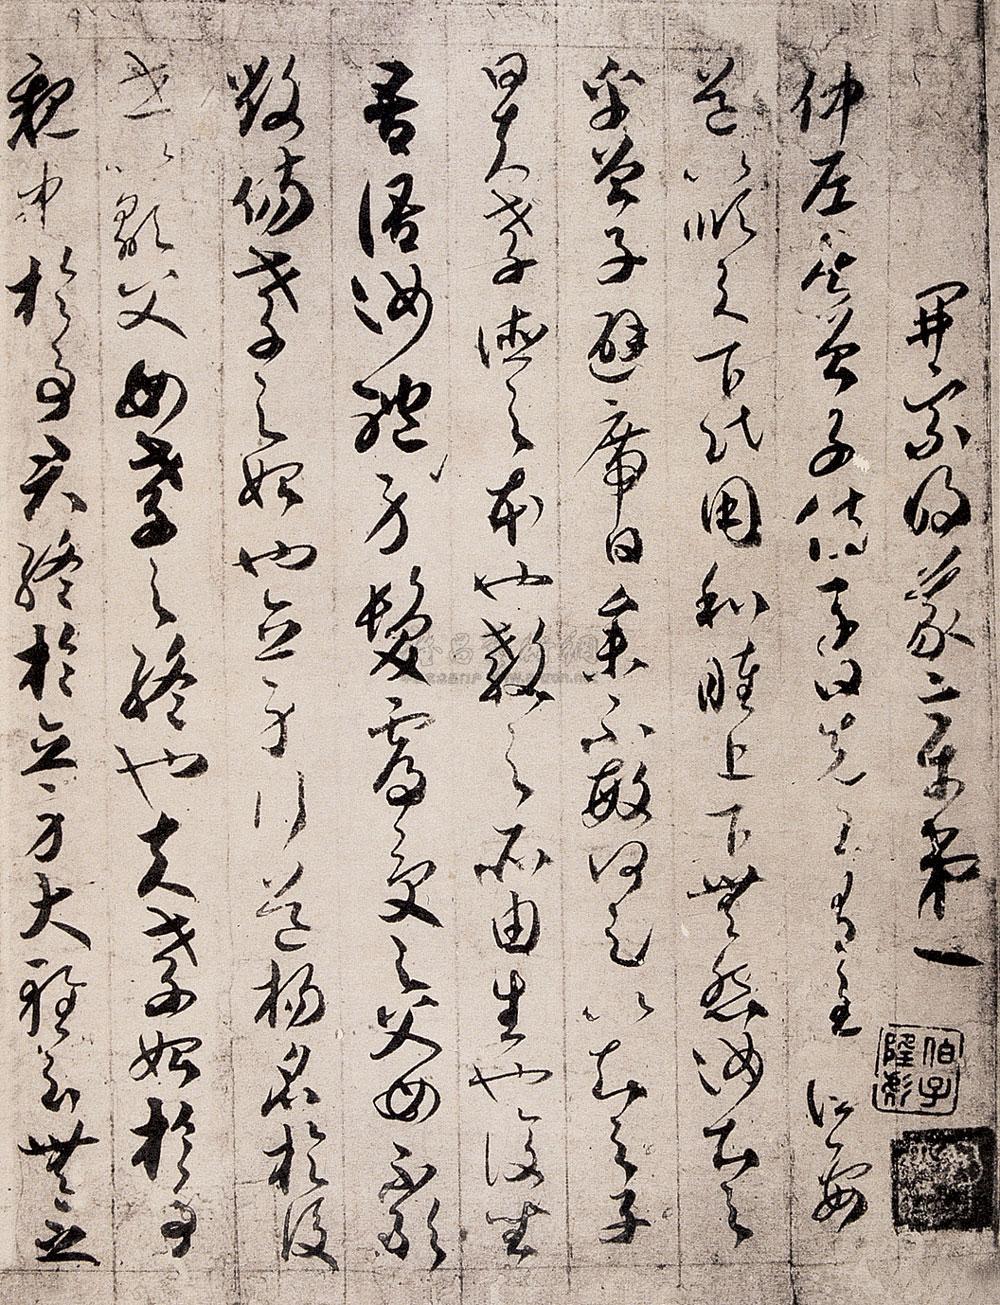 開宗明義章第一
仲尼居曾子侍子曰先王有至德要
道以順天下民用和睦上下無怨汝知之
乎曾子避席曰參不敏何足以知之子
曰夫孝德之本也教之所由生也復坐
吾語汝體身髮膚受之父母不敢
毀傷孝之始也立身行道揚名於後
世以顯父母孝之終也夫孝始於事
親中於事君終於立身大雅云無